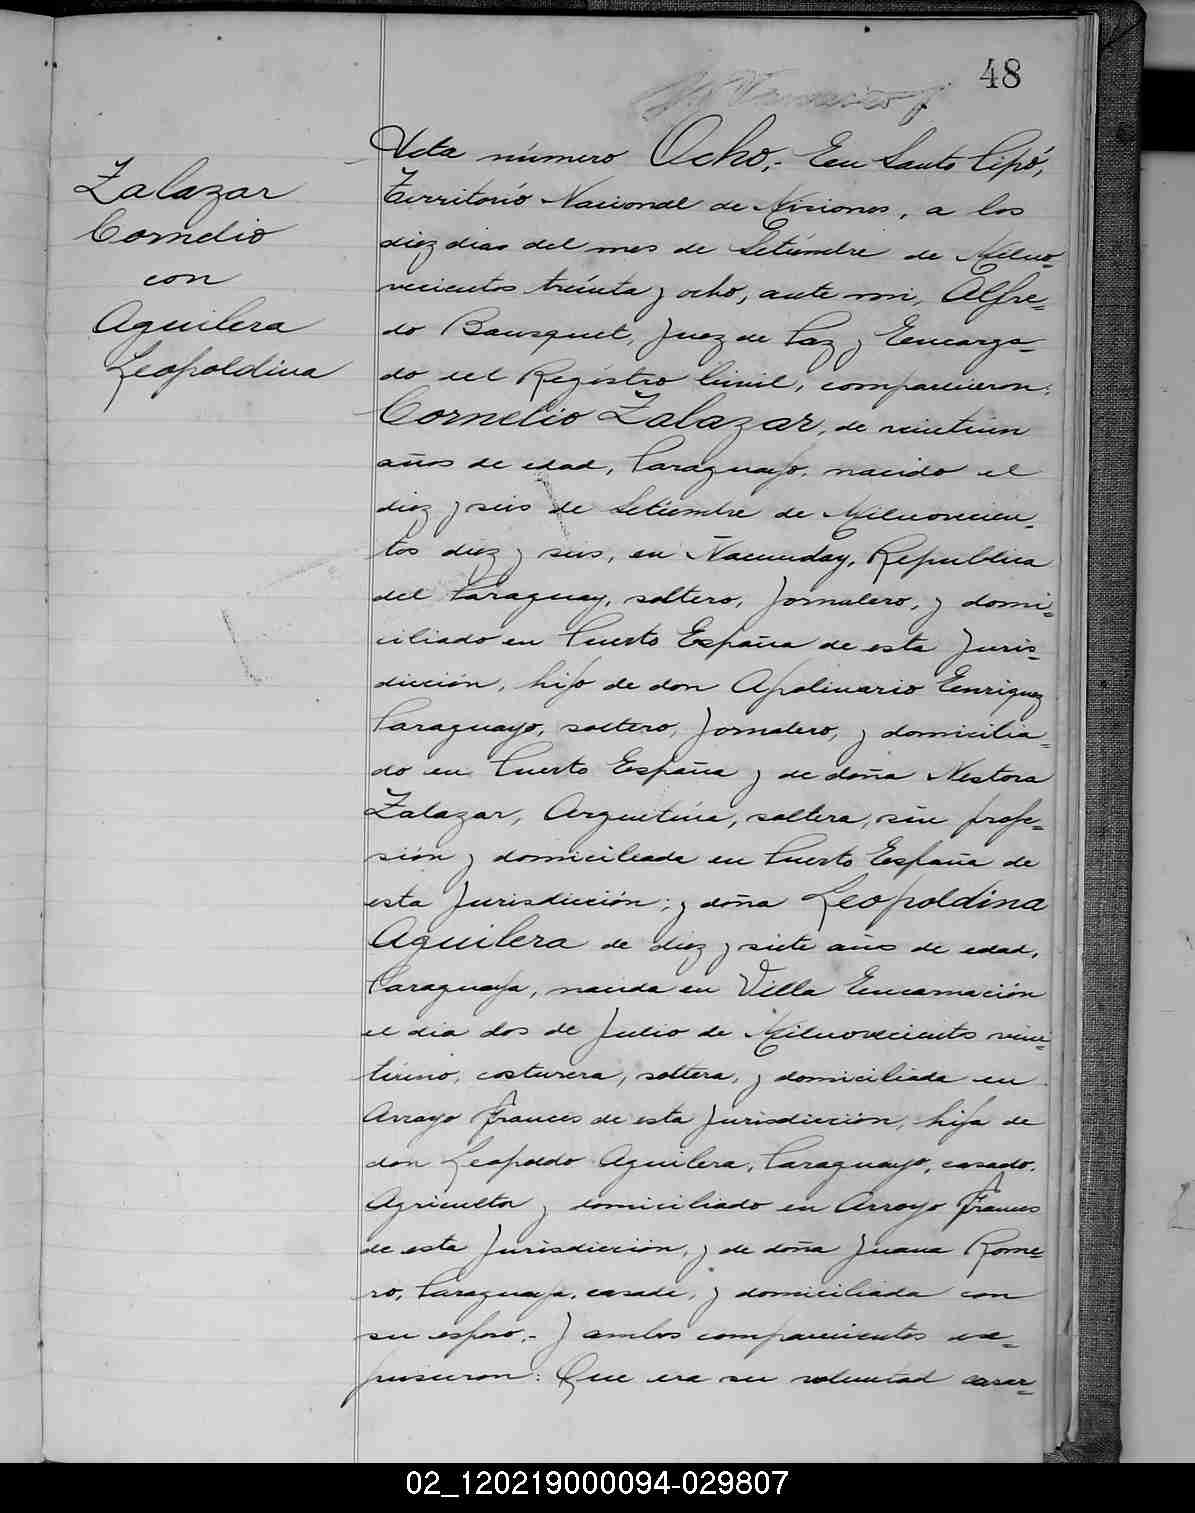 48
Acta número Ocho.- En Santo Pipó,
Territorio Nacional de Misiones, a los
diez dias del mes de Setiembre de Milno-
vecientos treinta y ocho, ante mi, Alfre-
do Bousquet, Juez de Paz y Encarga-
do del Registro Civil, comparecieron:
Cornelio Zalazar, de veintiun
años de edad, Paraguayo, nacido el
diez y seis de Setiembre de Milnovecien-
tos diez y seis, en Ñacunday, Republica
del Paraguay, soltero, Jornalero, y domi-
ciliado en Puerto España de esta Juris-
dicción, hijo de don Apolinario Enriquez
Paraguayo, soltero, Jornalero, y domicilia-
do en Puerto España y de doña Nestora
Zalazar, Argentina, soltera, sin profe-
sión y domiciliada en Puerto España de
esta Jurisdicción; y doña Leopoldina
Aguilera de diez y siete años de edad,
Paraguaya, nacida en Villa Encarnación
el dia dos de Julio de Milnovecientos vein-
tiuno, costurera, soltera, y domiciliada en
Arroyo Frances de esta Jurisdicción, hija de
don Leopoldo Aguilera, Paraguayo, casado,
Agricultor y domiciliado en Arroyo Frances
de esta Jurisdicción, y de doña Juana Rome-
ro, Paraguaya, casada, y domiciliada con
su esposo.- Y ambos comparecientos ex-
pusieron: Que era su voluntad casar-
Zalazar
Cornelio
con
Aguilera
Leopoldina
02_120219000094-029807